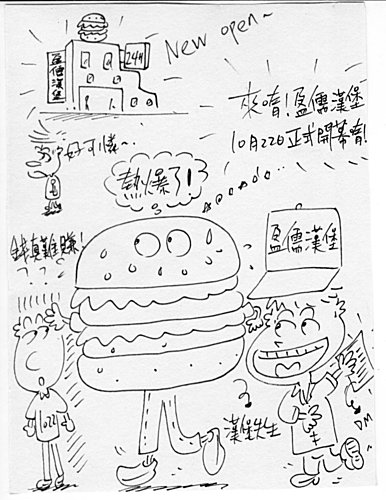 New open~
盈儒漢堡
24H
來唷!盈儒漢堡
10月22日正式開幕唷!
好可憐~
熱爆了!
盈儒漢堡
錢真難賺!
漢堡先生
DM